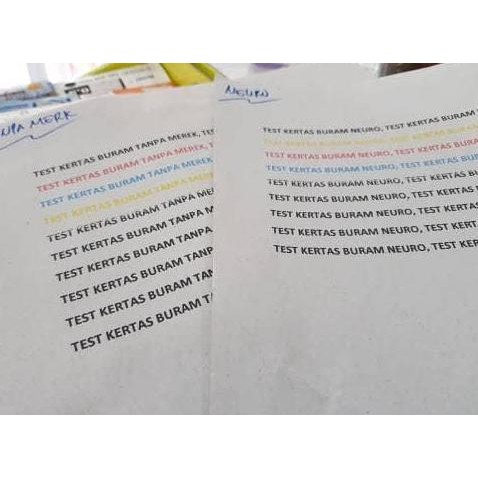 NPA MERK
TEST KERTAS BURAM TANPA MEREK, TES
TEST KERTAS BURAM TANPA MEREK,
TEST KERTAS BURAM TANPA MEREK
TEST KERTAS BURAM TANPA MERE
TEST KERTAS BURAM TANPA ME
TEST KERTAS BURAM TANPA M
TEST KERTAS BURAM TANPA
TEST KERTAS BURAM TANP
TEST KERTAS BURAM TAN
TEST KERTAS BURAM T
NEURO
TEST KERTAS BURAM NEURO, TEST KERTAS BURAM
TEST KERTAS BURAM NEURO, TEST KERTAS BURAM
TEST KERTAS BURAM NEURO, TEST KERTAS BURAM
TEST KERTAS BURAM NEURO, TEST KERTAS BURA
TEST KERTAS BURAM NEURO, TEST KERTAS BURA
TEST KERTAS BURAM NEURO, TEST KERTAS BUR
TEST KERTAS BURAM NEURO, TEST KERTAS B
TEST KERTAS BURAM NEURO, TEST KERTAS
TEST KERTAS BURAM NEURO, TEST KER